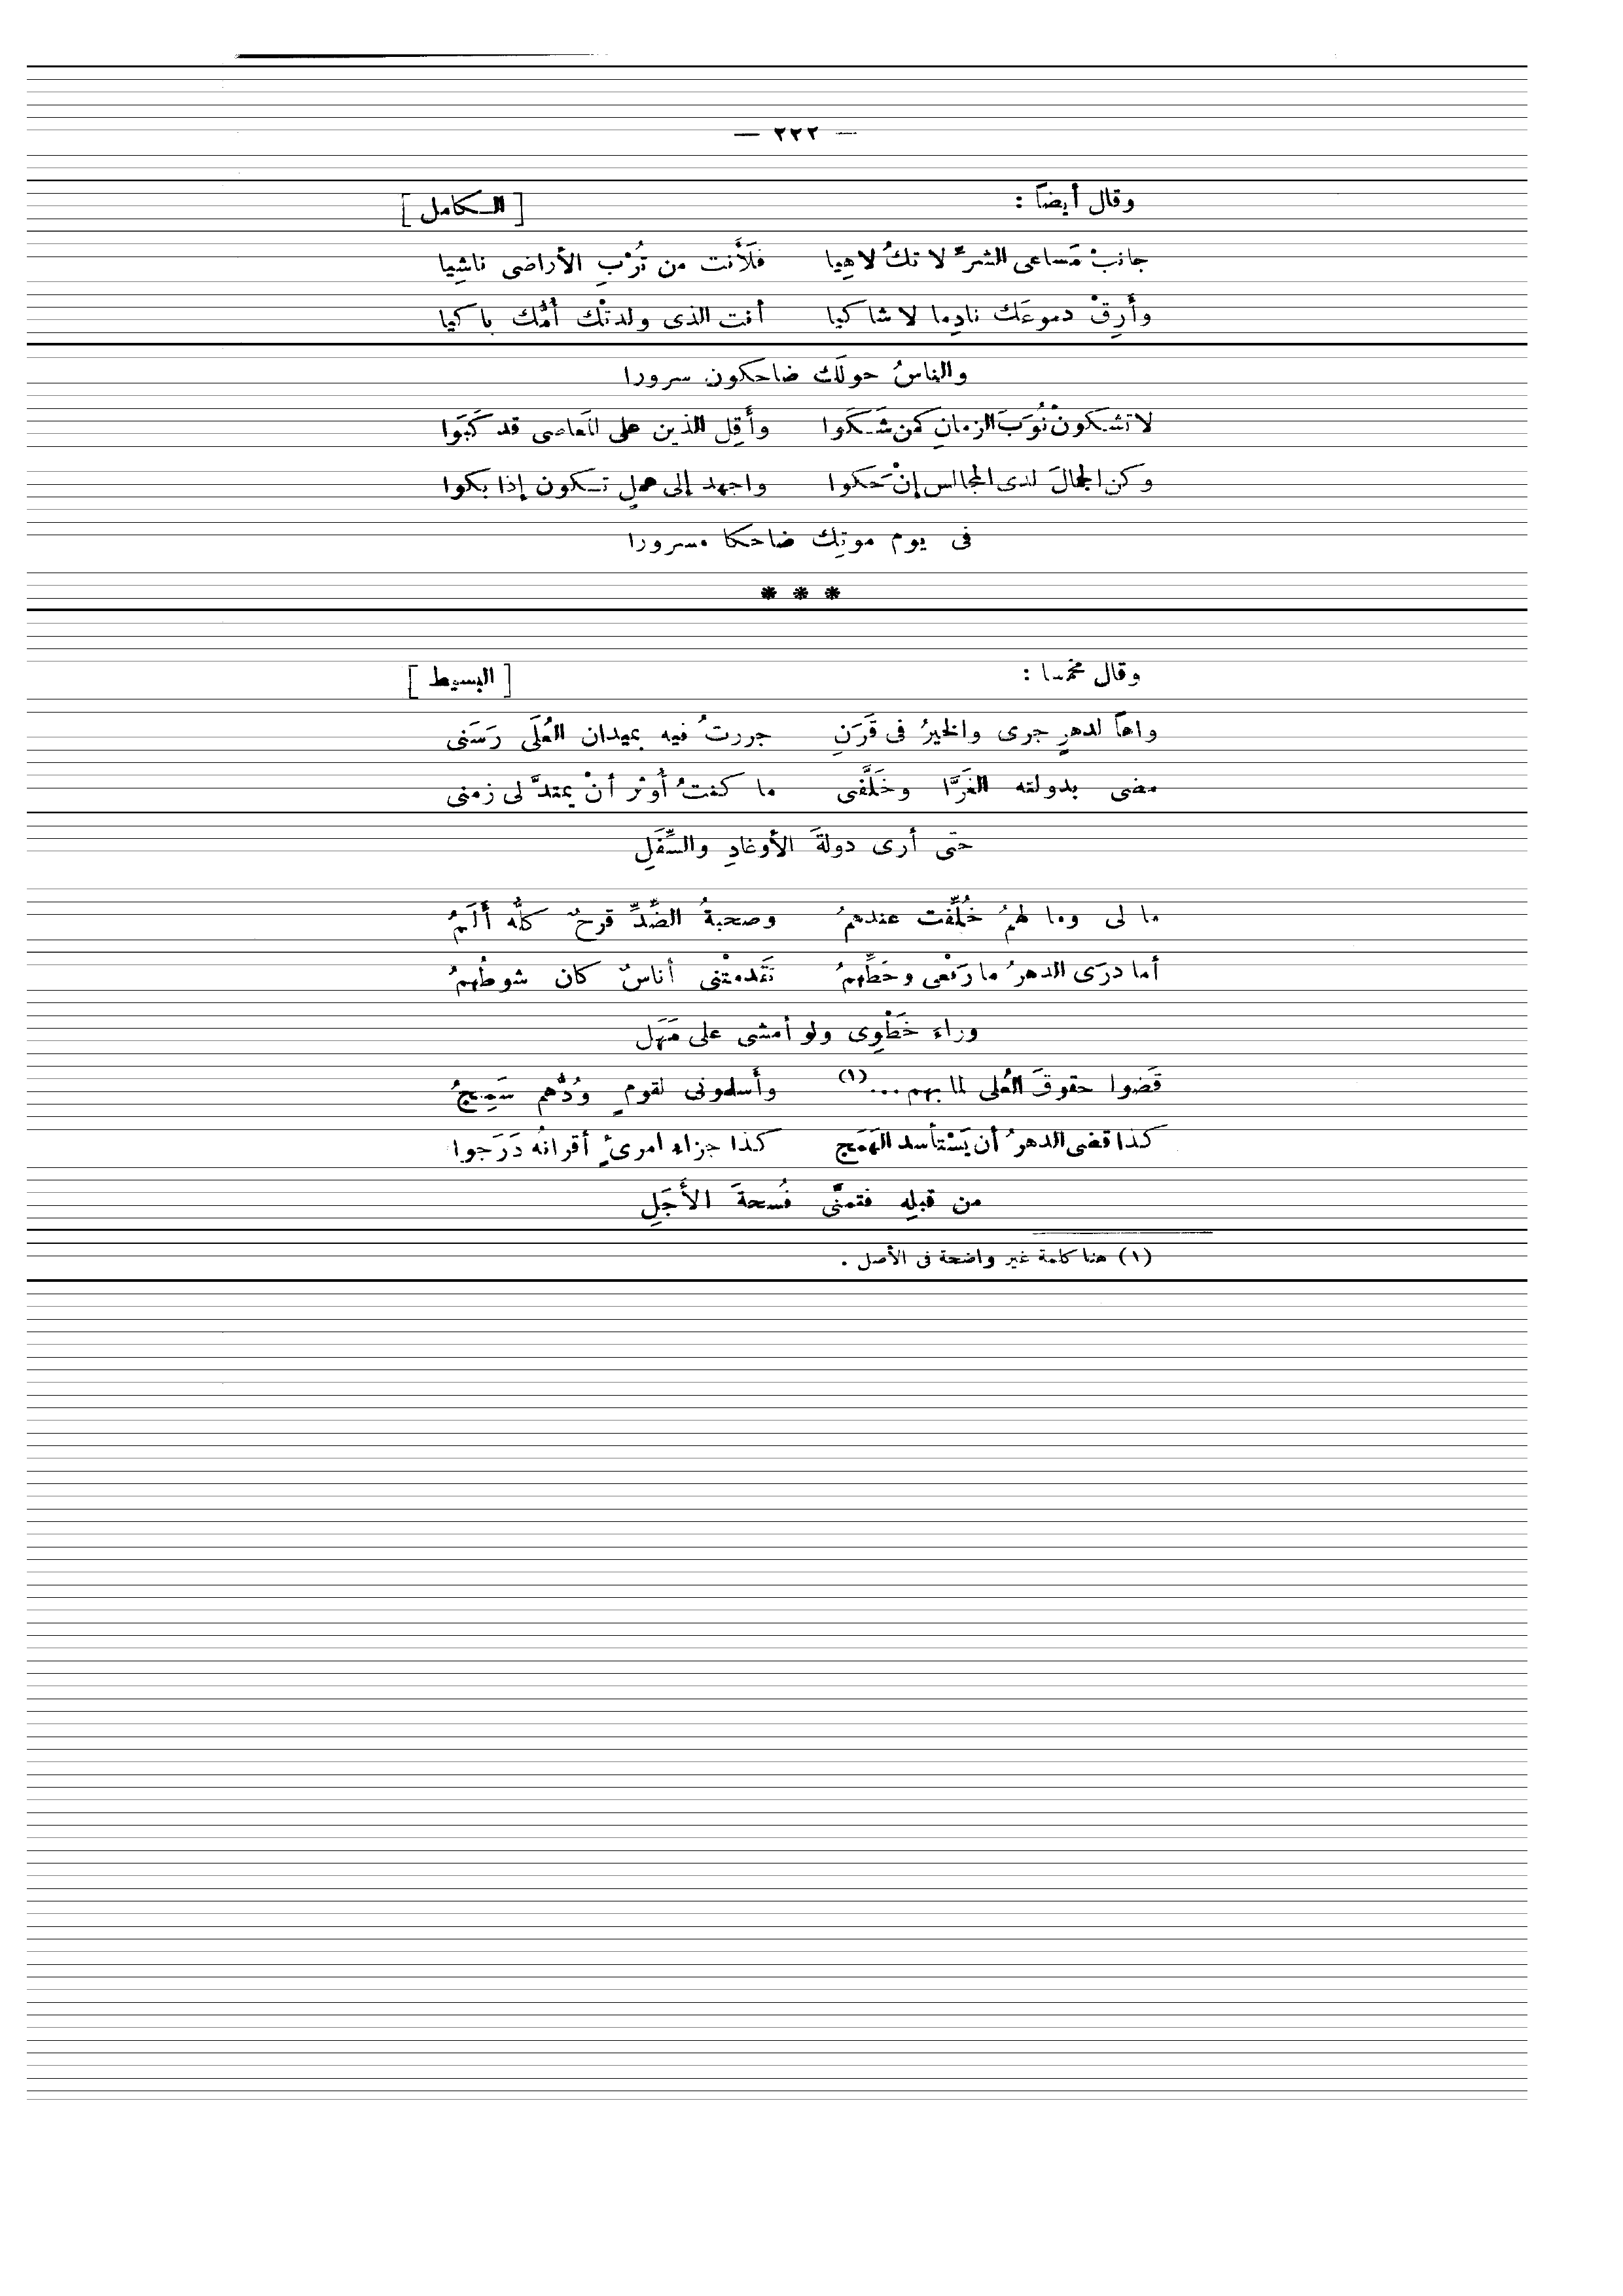 — ٢٢٢ —
وقال أيضاً : [ الـكامل ]
جانبْ مَساعى الشرِّ لا تكُ لاهِيا فلَأَنت من تُرْبِ الأراضى ناشِيا
وأَرِقْ دموعَك نادِما لا شاكيا أنت الذى ولدتْك أُمُّك باكيا
والناسُ حولَك ضاحكون سرورا
لا تشكونْ نُوَبَ الزمانِ كمن شَـكَوا وأَقِل الذين على المَعاصى قد كَبَوا
وكن الجمالَ لدى المجالس إنْ حَكوا واجهد إلى عملٍ تـكون إذا بكوا
فى يوم موتِك ضاحكا مسرورا
* * *
وقال مخمسا : [ البسيط ]
واهاً لدهرٍ جرى والخيرُ فى قَرَنِ جررتُ فيه بميدان العُلَى رَسَنى
مضى بدولته الغَرَّا وخَلَّفى ما كنتُ أُوثر أنْ يمتدَّ لى زمنى
حتى أرى دولةَ الأوغادِ والسِّفَلِ
ما لى وما لهمُ خُلِّفت عندهمُ وصحبةُ الضِّدِّ قرحٌ كلُّه أَلَمُ
أما درَى الدهرُ ما رَفْعى وحَطِّهمُ تَقَدمتْنى أناسٌ كان شوطُهمُ
وراءَ خَطْوِى ولو أمشى على مَهَل
قَضوا حقوقَ العُلى لما بهم ...(١) وأَسلمونى لقومٍ وُدُّهم سَمِجُ
كذا قضى الدهرُ أن يَسْتأسد الهَمَج كذا جزاء امرىءٍ أقرانُه دَرَجوا
من قبلِه فتمنَّى فُسحةَ الأَجَلِ
(١) هنا كلمة غير واضحة فى الأصل .